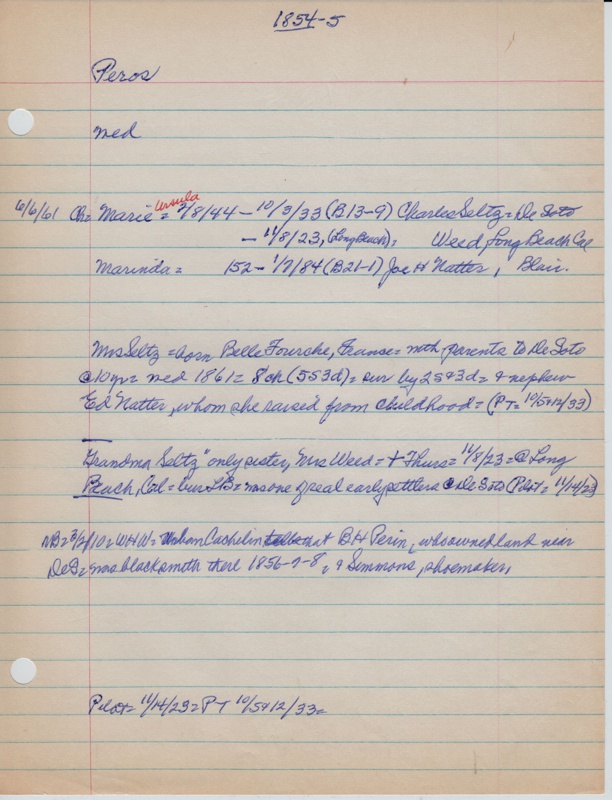 1854-5
Peros
med
Ursula
6/6/61 Ch= Marie = 2/8/44 - 10/3/33 (B13-9) Charles Seltz = De Soto
- 11/8/23, (Long Beach) = Weed Long Beach Cal
Marinda = 152 - 1/7/84 (B21-1) Joe H Natter, Blair.
Mrs Seltz = born Belle Fourche, France = with parents to De Soto
@ 10 yr = med 1861 = 8 ch (5S3d) = sur by 2S&3d = & nephew
Ed Natter, whom she raised from childhood = (PT= 10/5&12/33)
Grandma Seltz" only sister, Mrs Weed = + Thurs = 11/8/23 = @ Long
Beach, Cal = bur LB = was one of real early settlers @ De Soto (Pilot = 11/14/23)
NB = 3/2/10 = WHW = Cachelin that BH Perin, who owned land near
DeS = was blacksmith there 1856-7-8, & Simmons, shoemaker,
Pilot = 11/14/23 = PT 10/5&12/33 =